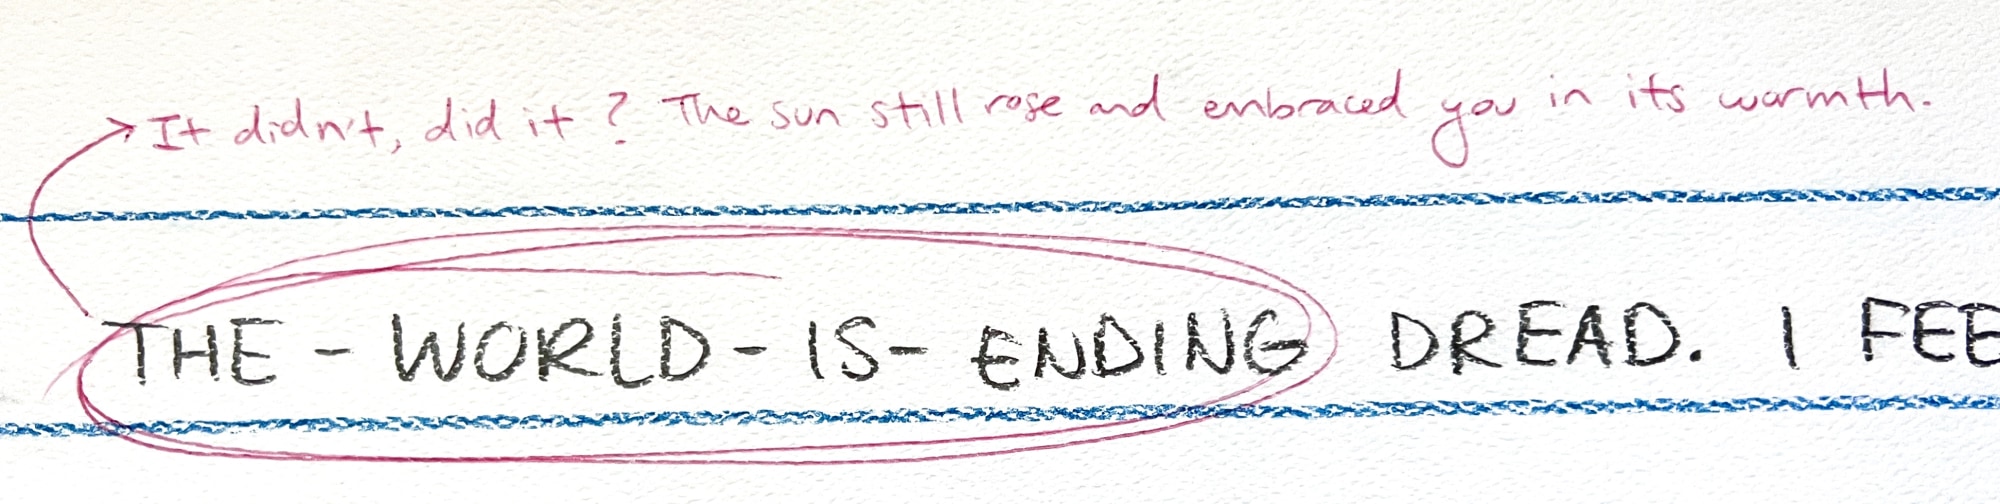 It didn't, did it? The sun still rose and embraced you in its warmth.
THE - WORLD - IS - ENDING DREAD. I FEE